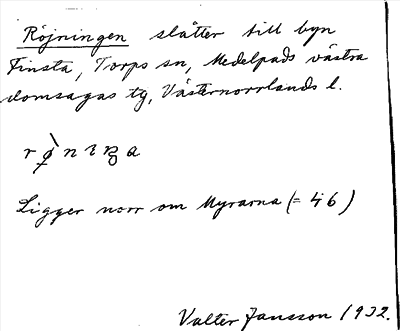 Röjningen slåtter till byn
Finsta, Torps sn, Medelpads västra
domsagas tg, Västernorrlands l.
Ligger norr om Myrarna (= 46)
Valter Jansson 1932.